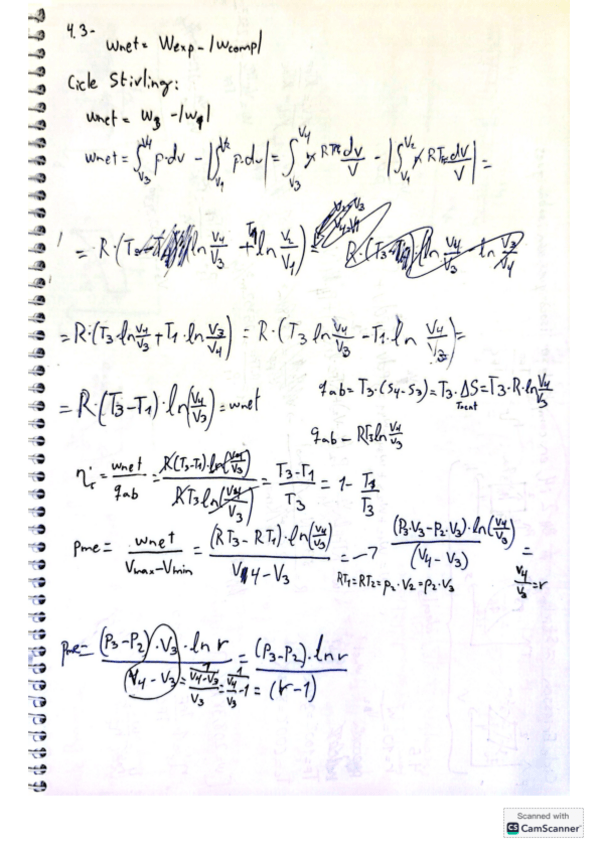 4.3-
Wnet = Wexp - |Wcomp|
Cicle Stirling:
Wnet = W3 - |W1|
Wnet = ∫V3^V4 p·dv - |∫V1^V2 p·dv| = ∫V3^V4 RT3 dv/V - |∫V1^V2 RT dv/V| =
= R·(T3 ln V4/V3 + T1 ln V2/V1) =
= R·(T3·ln V4/V3 + T1·ln V3/V4) = R·(T3 ln V4/V3 - T1·ln V4/V3) =
= R·(T3-T1)·ln(V4/V3) = wnet
qab = T3·(S4-S3) = T3·ΔS = T3·R·ln V4/V3
qab = RT3 ln V4/V3
= wnet/qab = R(T3-T1)·ln(V4/V3)/RT3 ln(V4/V3) = T3-T1/T3 = 1 - T1/T3
Pme = wnet/Vmax-Vmin = (RT3 - RT1)·ln(V4/V3)/V4-V3 = (P3·V3-P2·V3)·ln(V4/V3)/(V4-V3) =
RT1=RT2=P2·V2=P2·V3
V4/V3=r
Pme = (P3-P2)·V3·ln r/(V4-V3) = (P3-P2)·ln r/(r-1)
= 1/V4-V3/V3 = 1/V4/V3-1 =
Scanned with
CS CamScanner